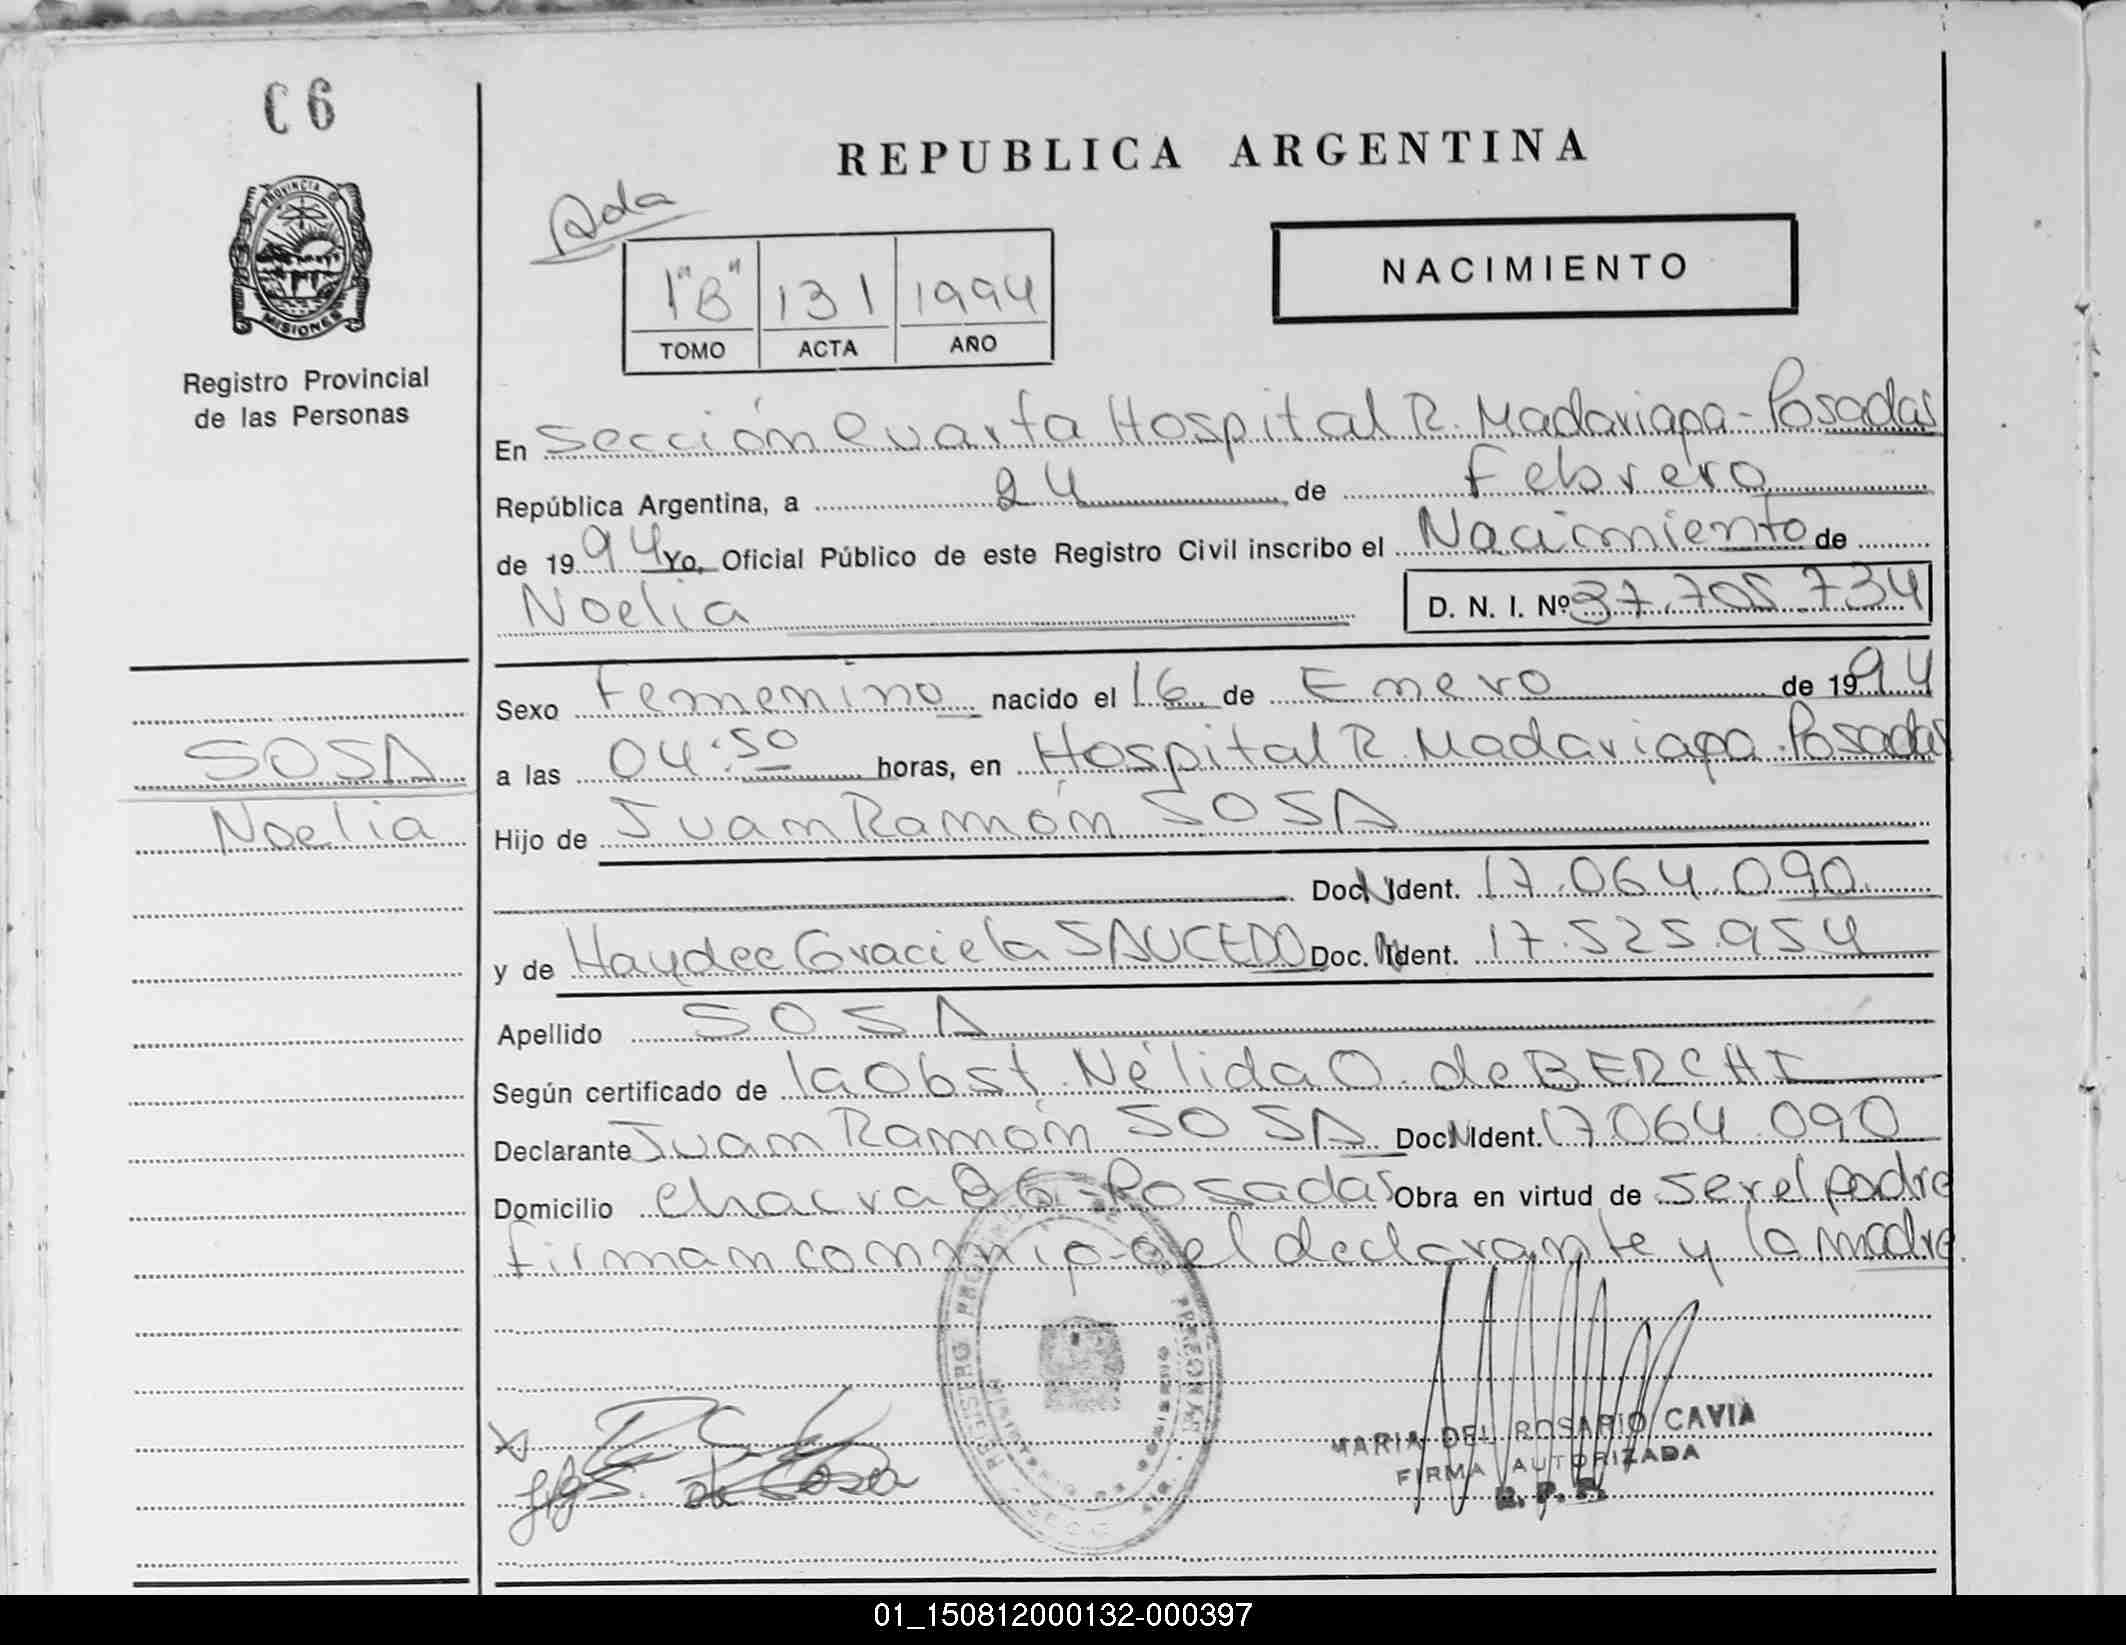 C 6
PROVINCIA D
MISIONES
Registro Provincial
de las Personas
REPUBLICA ARGENTINA
Ada
1 "B" 131 1994
TOMO ACTA AÑO
NACIMIENTO
En Sección Cuarta Hospital R. Madariaga - Posadas
República Argentina, a 24 de Febrero
de 1994 Yo, Oficial Público de este Registro Civil inscribo el Nacimiento de
Noelia D. N. I. Nº 37.705.734
Sexo Femenino nacido el 16 de Enero de 1994
SOSA
Noelia
a las 04:50 horas, en Hospital R. Madariaga - Posadas
Hijo de Juan Ramón SOSA
Doc. N Ident. 17.064.090
y de Haydee Graciela SAUCEDO Doc. N Ident. 17.525.954
Apellido SOSA
Según certificado de la Obst. Nélida O. de BERCHI
Declarante Juan Ramón SOSA Doc N Ident. 17.064.090
Domicilio Chacra 86 - Posadas Obra en virtud de ser el padre
firman conmigo el declarante y la madre
MARIA DEL ROSARIO CAVIA
FIRMA AUTORIZADA
R. P. P.
de Sosa
01_150812000132-000397